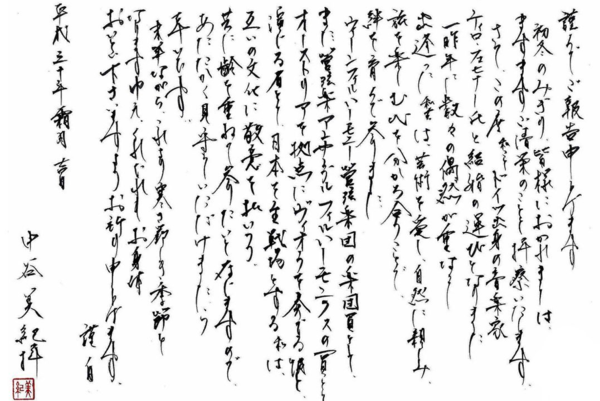 謹んでご報告申し上げます
初冬のみぎり、皆様におかれましては、
ますますご清栄のことと拝察いたします。
さて、この度 ドイツ出身の音楽家
ティロ・フェヒナー氏と結婚の運びとなりました。
一昨年に数々の偶然が重なり
出逢った は、芸術を愛し自然に親しみ、
旅を楽しむ を分かち合うことで
絆を育んで参りました。
ウィーンフィルハーモニー管弦楽団の楽団員として、
また、弦楽アンサンブルフィルハーモニクスの一員として
オーストリアを拠点にヴィオラを奏でる彼と、
演じる者として日本を主戦場とする私は
互いの文化に敬意を払いつつ、
共に齢を重ねて参りたいと存じますので
あたたかく見守っていただけましたら
幸いです。
末筆ながら、これより寒さ厳しき季節と
なりますゆえ、くれぐれもお身体
おいといくださいますようお祈り申し上げます。
謹白
平成三十年霜月吉日
中谷美紀拝
美紀